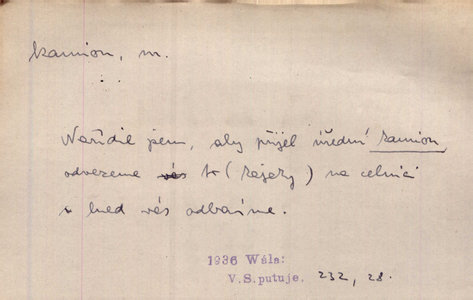 kamion, m.
Nařídil jsem, aby přijel úřední kamion,
odvezeme vás to (kejezy) na celnici
a hned vás odbavíme.
1936 Wála:
V.S.putuje, 232, 28.